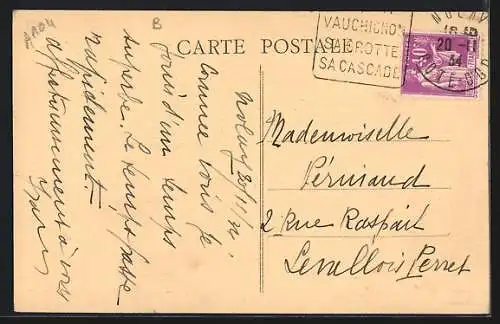 B
CARTE POSTALE
VAUCHIGNON
SA GROTTE
SA CASCADE
NOLAY
20 -11
34
CÔTE-D'OR
Nolay 20/11/34.
Comme vous je
jouis d'un temps
superbe. Le temps passe
rapidement.
affectueusement à vous
Mademoiselle
Perniaud
2 Rue Raspail
Levallois Perret